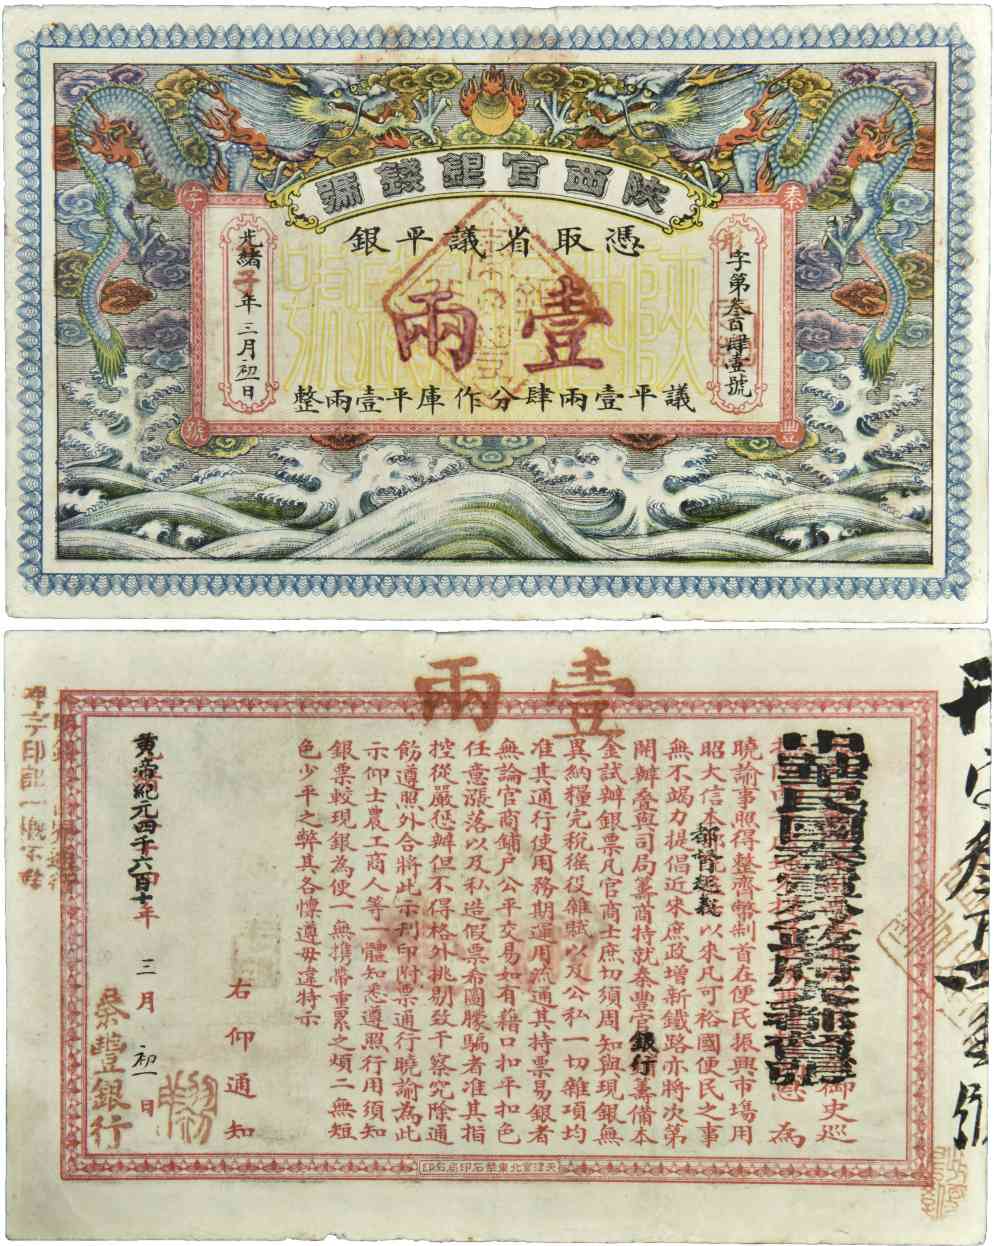 陝西官銀錢號
憑取省議平銀
壹兩
議平壹兩肆分作庫平壹兩整
秦豐
字號
字第叁百肆壹號
光緒子年三月初一日
壹兩
中華民國秦軍政府大都督張
御史巡
為
曉諭事照得整齊幣制首在便民振興市場用
昭大信本都督起義以來凡可裕國便民之事
無不竭力提倡近來庶政增新鐵路亦將次第
開辦疊與司局籌商特就秦豐官銀行籌備本
金試辦銀票凡官商士庶切須周知與現銀無
異納糧完稅徭役雜賦以及公私一切雜項均
准其通行使用務期運用流通其持票易銀者
無論官商鋪户公平交易如有藉口扣平扣色
任意漲落以及私造假票希圖朦騙者准其指
控從嚴懲辦但不得格外挑剔致干察究除通
飭遵照外合將此示刊印附票通行曉諭為此
示仰士農工商人等一體知悉遵照行用須知
銀票較現銀為便一無携帶重累之煩二無短
色少平之弊其各懍遵毋違特示
右仰通知
黄帝紀元四千六百十年三月初一日
秦豐銀行
字印記一概不
天津官北東華石印局石印